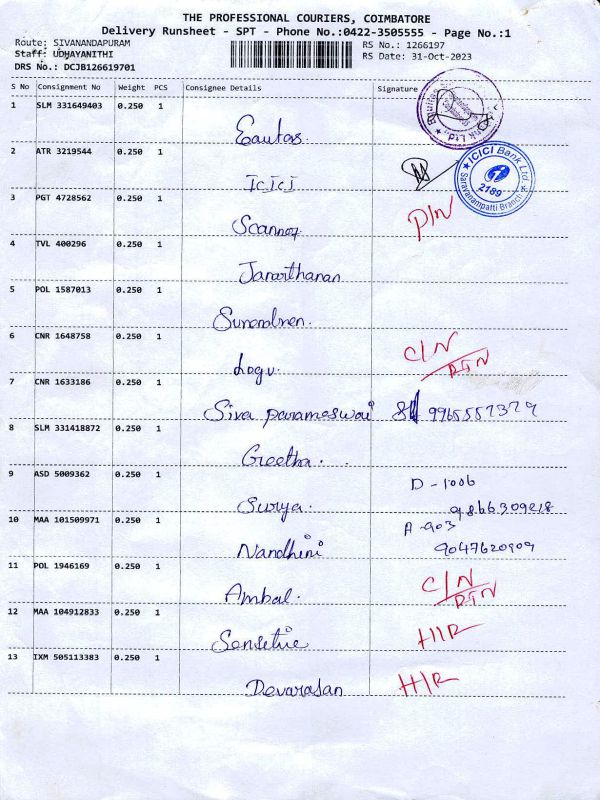 THE PROFESSIONAL COURIERS, COIMBATORE
Delivery Runsheet - SPT - Phone No.:0422-3505555 - Page No.:1
Route: SIVANANDAPURAM
RS No.: 1266197
Staff: UDHAYANITHI
RS Date: 31-Oct-2023
DRS No.: DCJB126619701
S No Consignment No Weight PCS Consignee Details Signature
1 SLM 331649403 0.250 1
2 ATR 3219544 0.250 1
ICICI
ICICI Bank Ltd.
2189
Saravanampatti Branch
3 PGT 4728562 0.250 1
D/N
4 TVL 400296 0.250 1
Janarthanan
5 POL 1587013 0.250 1
6 CNR 1648758 0.250 1
Logu. C/N
RTN
7 CNR 1633186 0.250 1
Siva parameswari
8 SLM 331418872 0.250 1
Geetha.
9 ASD 5009362 0.250 1
D-1006
Surya.
10 MAA 101509971 0.250 1
A-903
Nandhini 9047620909
11 POL 1946169 0.250 1
Ambal. C/N
RTN
12 MAA 104912833 0.250 1
H/R
13 IXM 505113383 0.250 1
Devarasan H/R